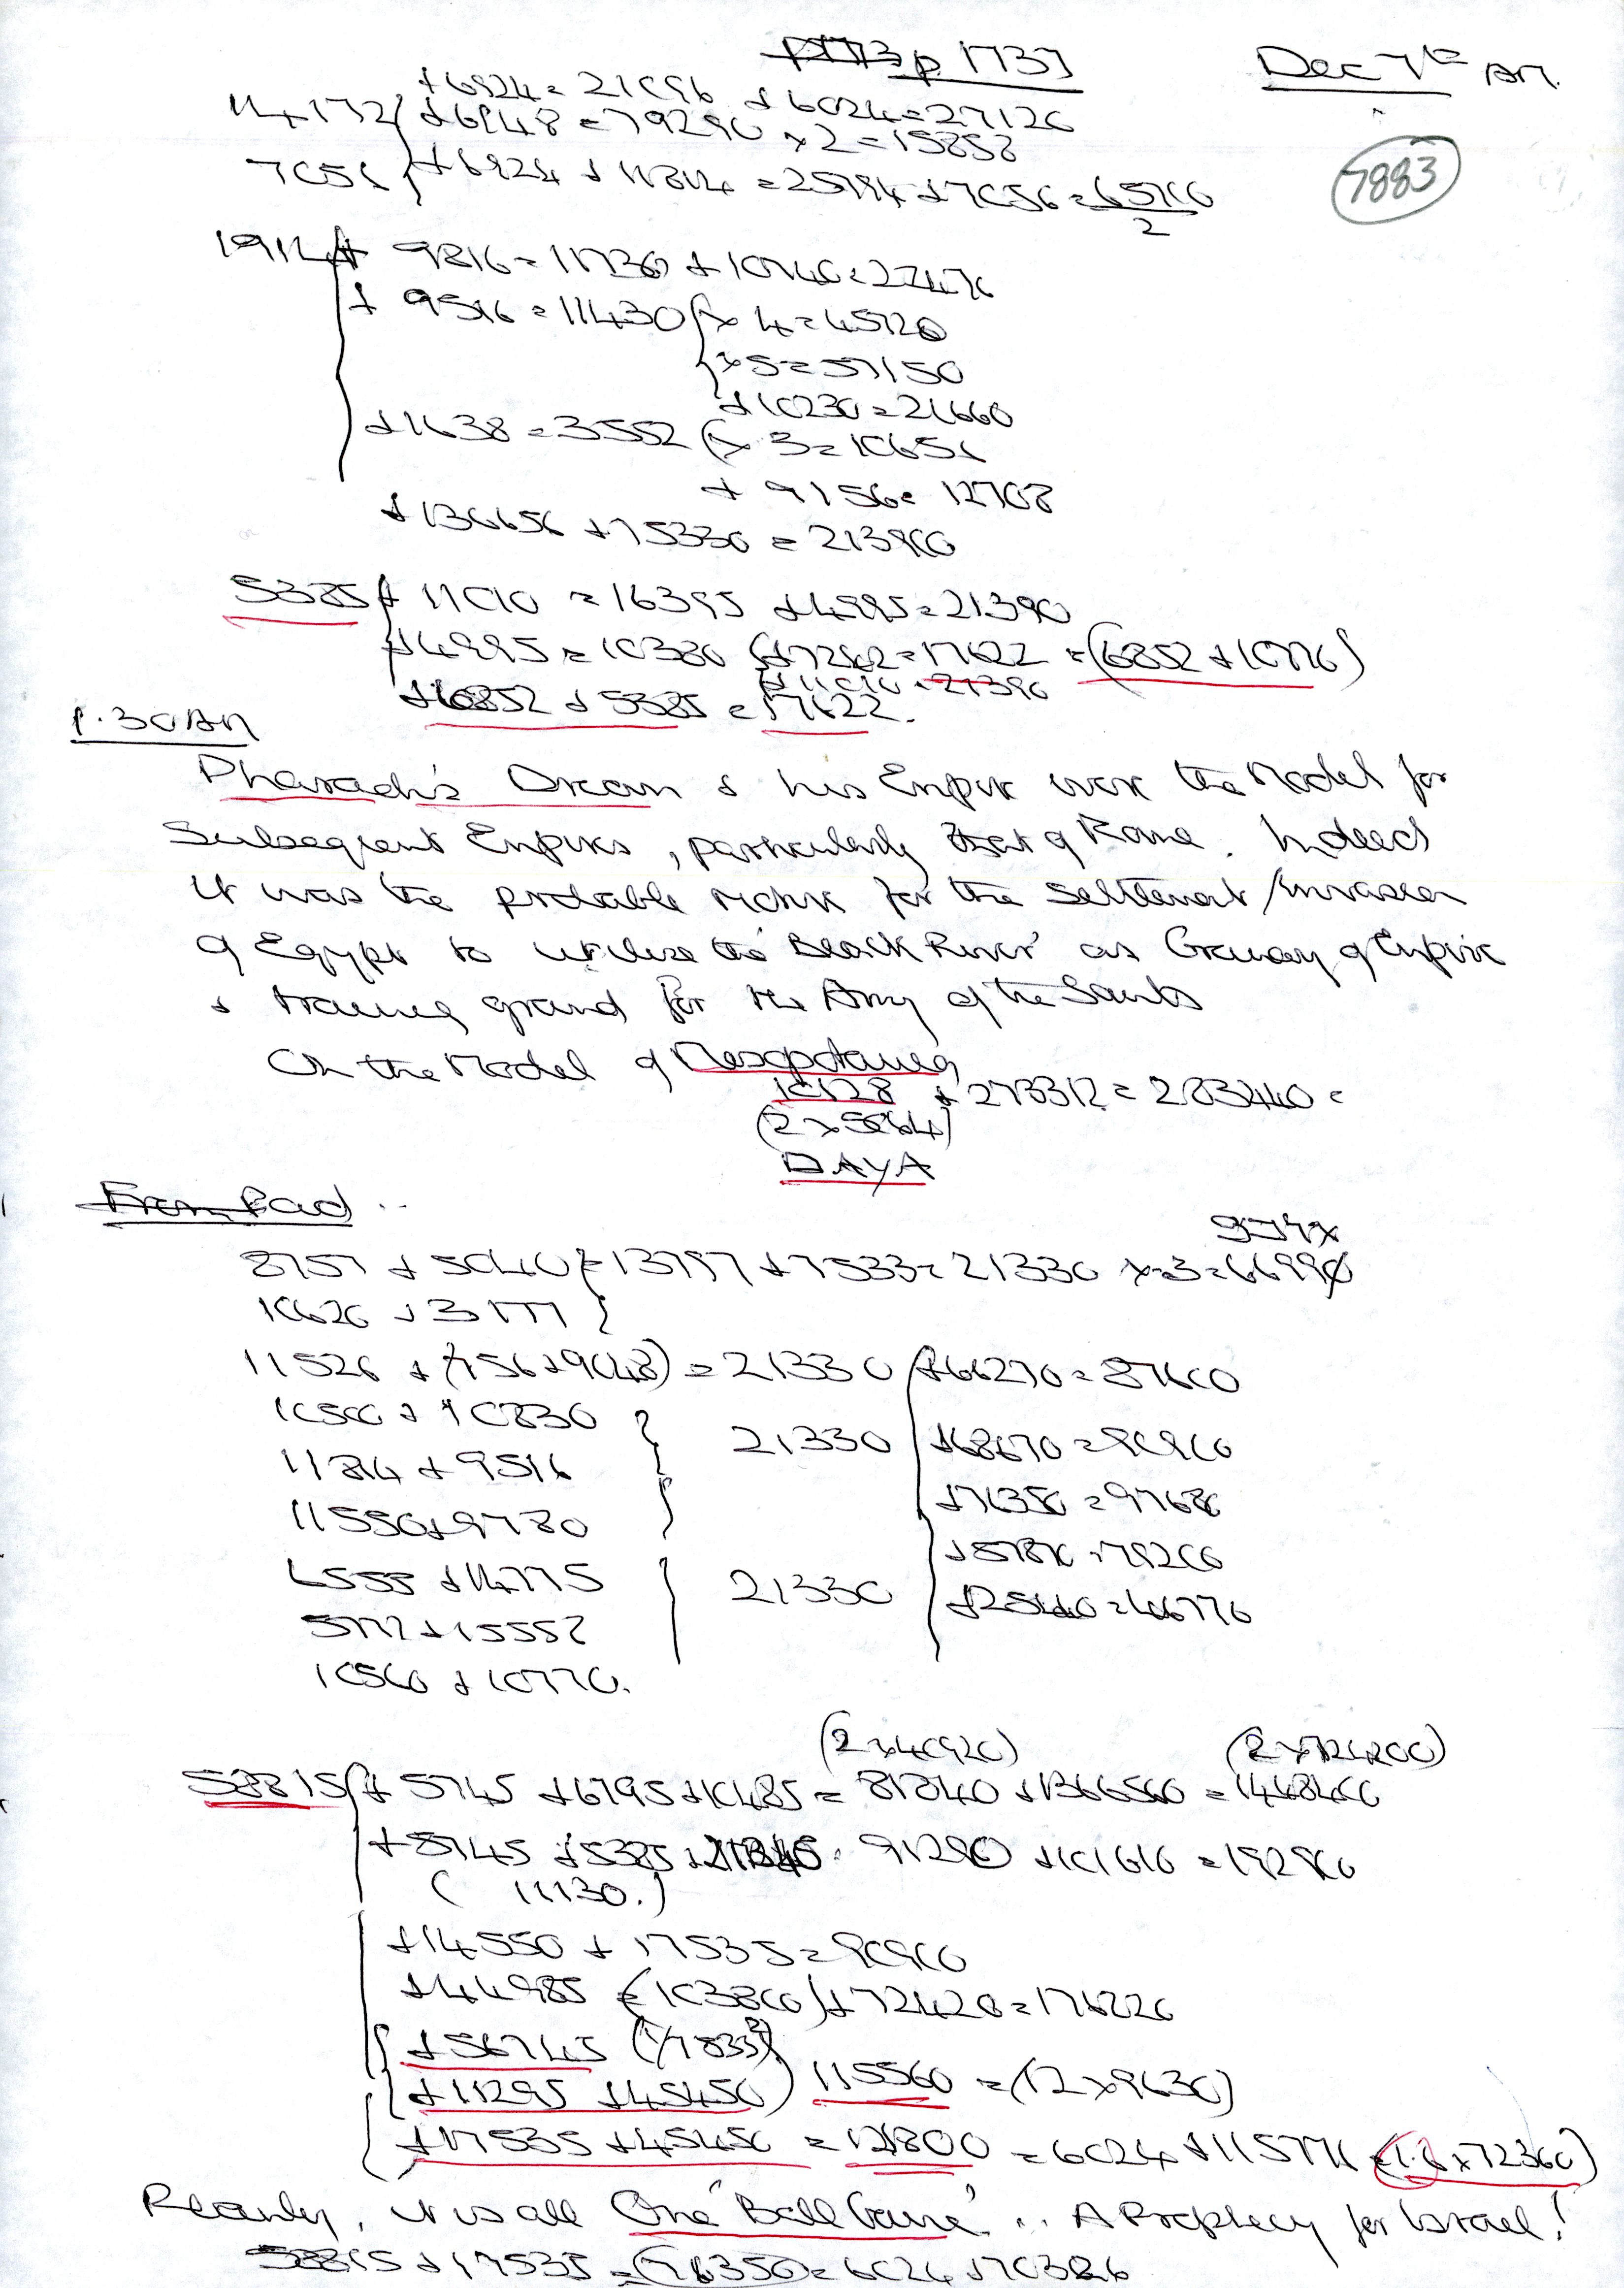 p 1737 Dec 7th AM.
7883
+6924 = 21096 +6024 = 27120
7056 +6924 + 11814 = 25794 +7056 =
2
1914 + 9816 = 11730 + 10740 = 22470
+ 9516 = 11430 x 4 = 45720
x 5 = 57150
+10230 = 21660
+1638 = 3552 (x 3 = 10656
+ 9156 = 12708
+136656 +75330 = 213900
5385 + 11010 = 16395 +4995 = 21390
+4995 = 10380 +7242 = 17622 = (6852 +10770)
+11010 = 21390
+6852 + 5385 = 17622.
1.30AM
Pharaoh's Dream & his Empire were the Model for
Subsequent Empires, particularly that of Rome. Indeed
it was the probable motive for the settlement/invasion
of Egypt to utilise the 'Black River' as Granary of Empire
& training ground for the Army of the Saints
On the Model of Mesopotamia
10128 + 273312 = 283440 =
(2 x 5064)
DAYA
From Pad ..
8757 + 5040 = 13797 +7533 = 21330 x 3 =
10620 + 3177
11526 + (756+9048) = 21330 +66270 = 87600
10500 + 10830
21330 +68670 = 90900
11814 + 9516
+76350 = 97680
11550 + 9780
+57870 = 79200
6555 +14775 21330 +25440 = 46770
5772 +15558
10560 + 10770.
(2 x 40920) (2 x 724200)
58815 + 5745 +6795 +10485 = 81840 +1366560 = 1448400
+5745 +5385 91280 +101610 = 192900
( 11130.)
+14550 + 17535 = 90900
+44985 = (103800) +72420 = 176220
+56745
+11295 +45450 115560 = (12 x 9630)
+17535 +45450 = 121800 = 6024 +115776 = (1.6 x 72360)
Really, it is all 'One Ball Game' ... A Prophecy for Israel!
58815 +17535 = (76350) = 6024 +70326